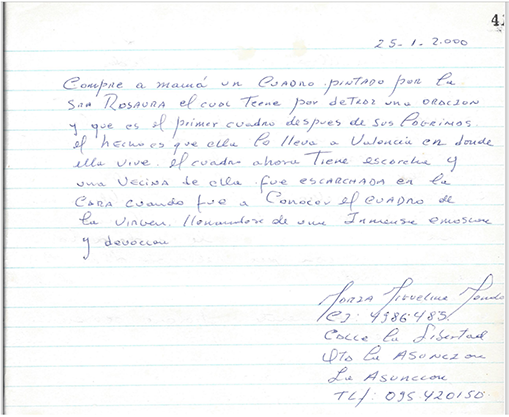 41
25-1-2.000
Compre a mamá un CUADRO pintado por la
Sra ROSAURA el cual Tiene por deTRAZ una ORACION
y que es el primer cuadro despues de sus LAGRIMAS.
el hecho es que ella lo lleva a Valencia en donde
ella vive. el cuadro ahora Tiene escarcha y
una VECINA de ella fue ESCARCHADA en la
CARA cuando fue a Conocer el CUADRO de
la VIRGEN, llenandose de una Inmensa emosion
y devocion
CI: 4386485
Calle la Libertad
Qta la ASUNCION
La ASUNCION
TLf: 095-420150